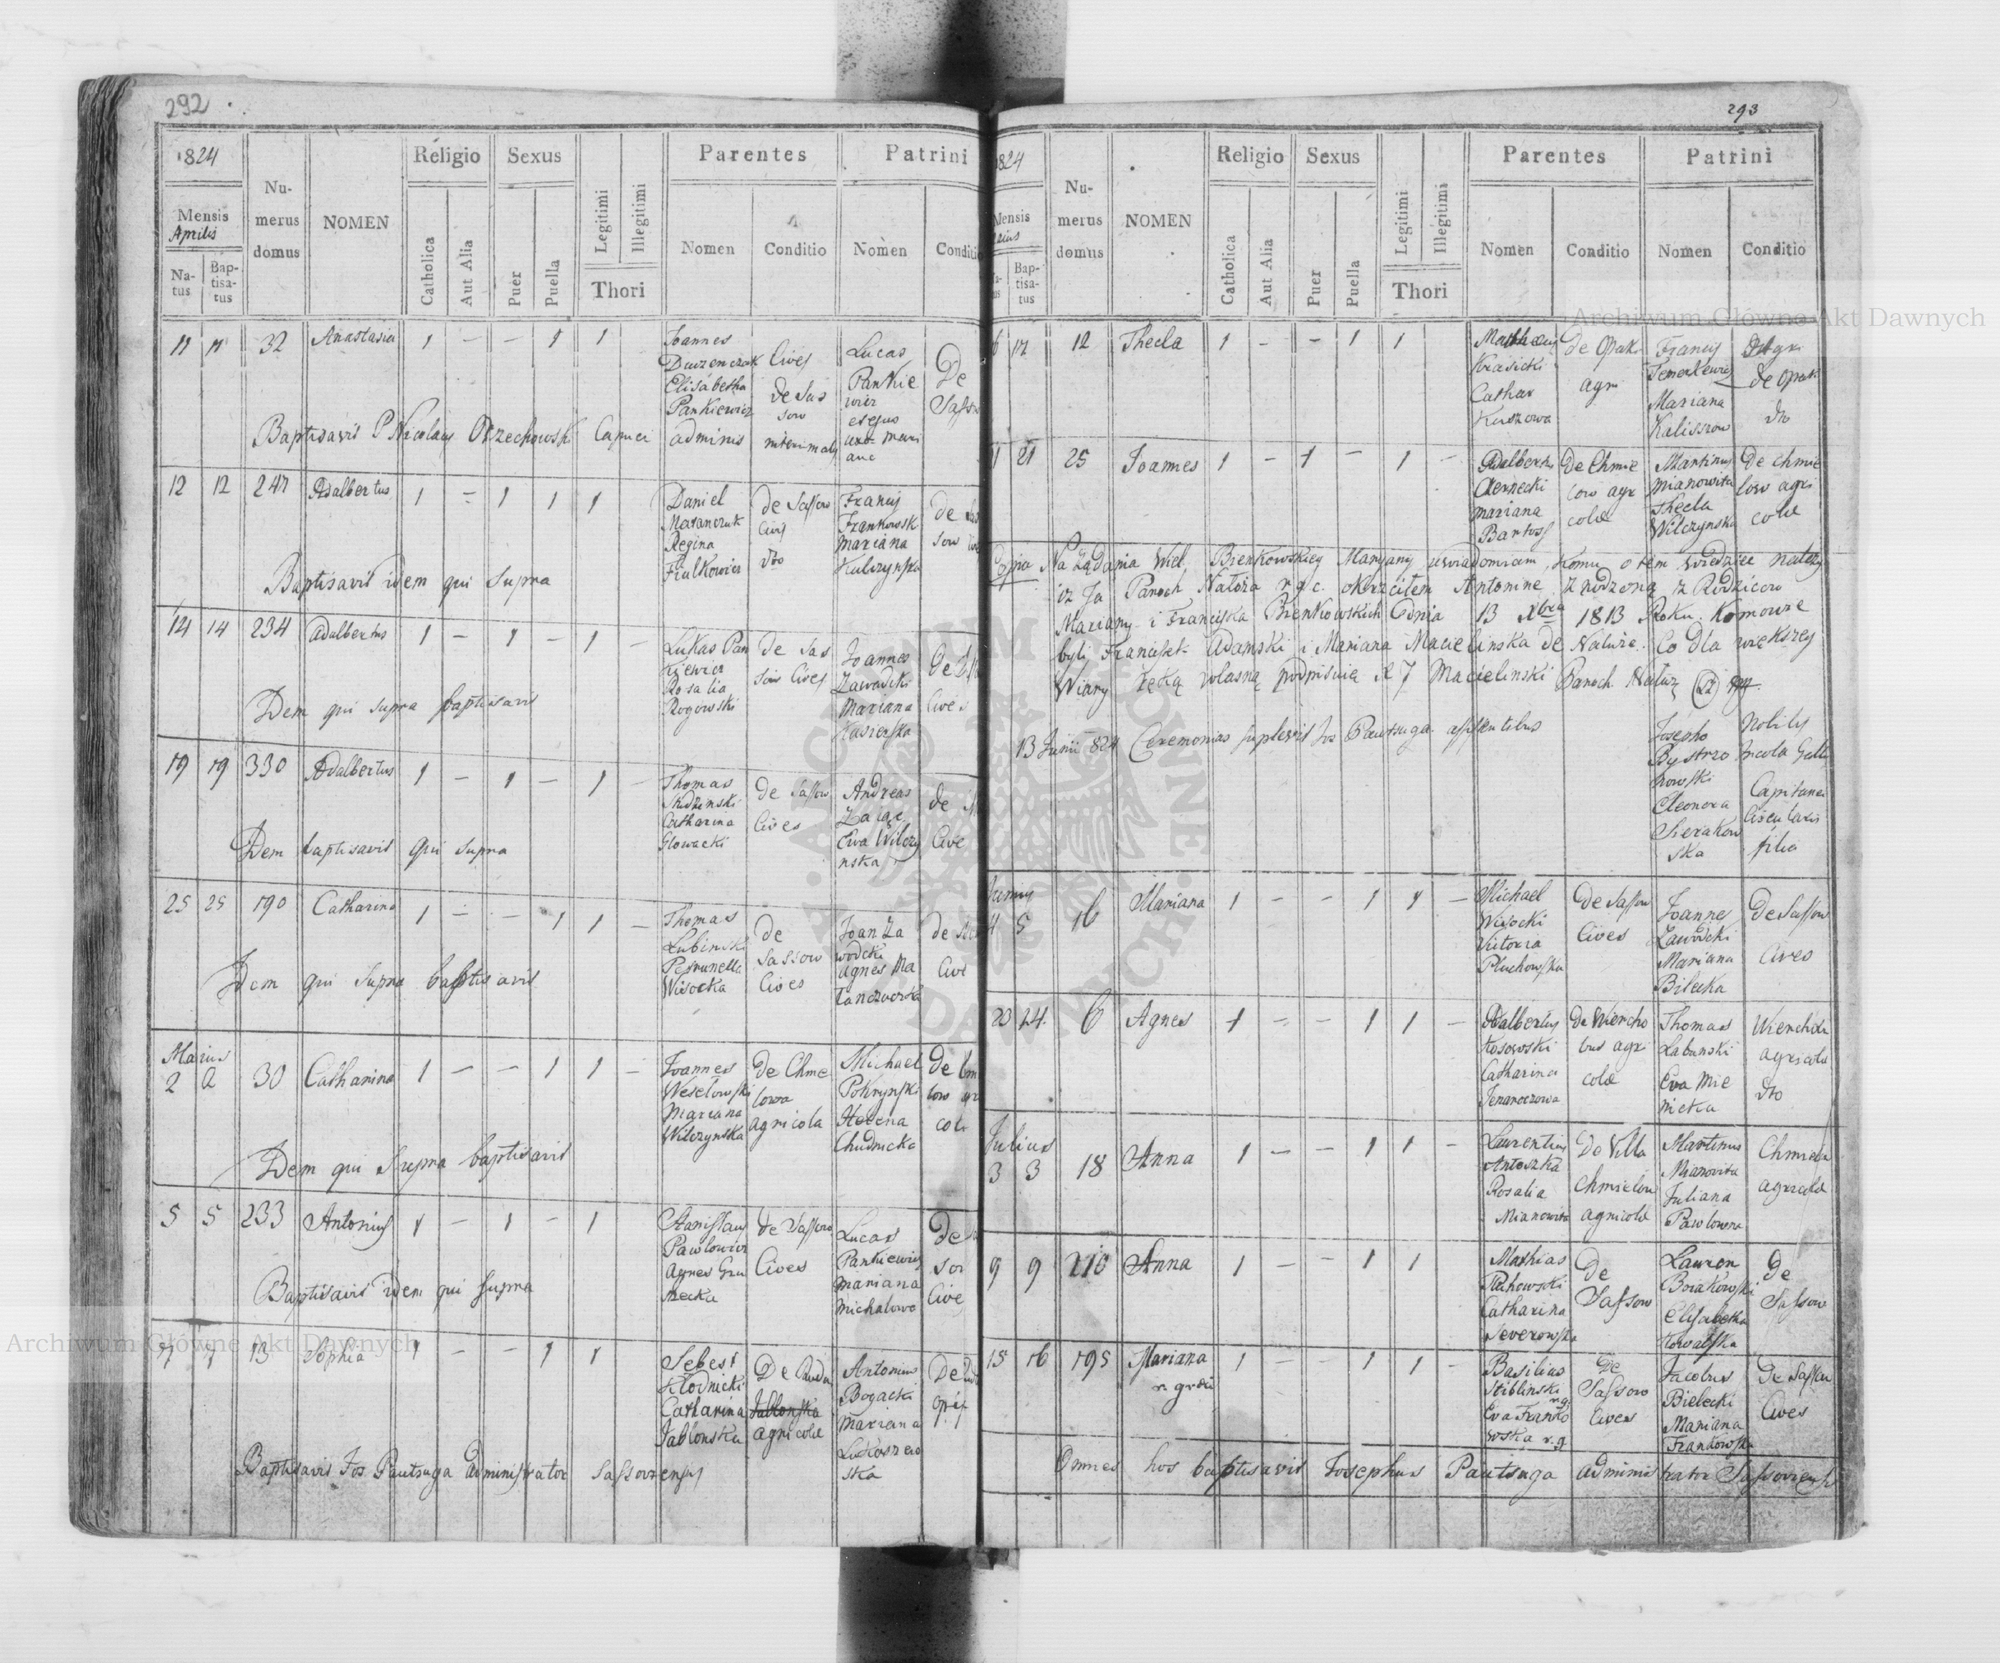 292
1824
Mensis Aprilis
Natus
Baptisatus
Numerus domus
NOMEN
Religio
Catholica
Aut Alia
Sexus
Puer
Puella
Legitimi
Illegitimi
Thori
Parentes
Nomen
Conditio
Patrini
Nomen
Conditio
11 11 32 Anastasia 1 – – 1 1
Joannes
Elisabetha
Pankiewicz
Cives
de Sas
sow
Lucas
Pankie
wicz
ejus
De
Sassow
Baptisavit P Nicolaus Orzechowski Capuci adminis
12 12 247 Adalbertus 1 – 1 1 1
Daniel
Regina
Fialkowicz
de Sassow
Cives
dto
Francij
Frankowsk
Mariana
Kulczynska
de Sas
sow
Baptisavit idem qui supra
14 14 234 Adalbertus 1 – 1 – 1 –
Lukas Pan
kiewicz
Rosalia
Rogowski
de Sas
sow Cives
Joannes
Zawadzki
Mariana
Cives
Idem qui supra baptisavit
19 19 330 Adalbertus 1 – 1 – 1 –
Thomas
Catharina
Glowacki
de Sassow
Cives
Andreas
Zaiąc
Ewa Wilczy
nska
de
Cive
Idem baptisavit qui supra
25 25 190 Catharina 1 – – 1 1 –
Thomas
Lubinski
Petrunella
Wisocka
de
Sassow
Cives
Joan Za
wodcki
Agnes Ma
de
Cive
Idem qui supra baptisavit
Maius
2 2 30 Catharina 1 – – 1 1 –
Joannes
Weselowski
Mariana
Wilczynska
de Chme
lowa
agricola
Michael
Pokrynski
Helena
Chudnicka
De
low
cole
Idem qui supra baptisavit
5 5 233 Antonius 1 – 1 – 1
Stanislaus
Pawlowicz
Agnes Gru
de Sassow
Cives
Lucas
Pankiewicz
Mariana
Michalowa
De
sow
Cive
Baptisavit idem qui supra
7 7 13 Sophia 1 – – 1 1
Sebest
Klodnicki
Catharina
Jablonska
De Ruda
Jablonska
agricole
Antonius
Bogacki
Mariana
Lukaszew
ska
De
opif
Baptisavit Jos Pautsuga Administrator Sassoviensis
293
1824
Mensis
Maius
Natus
Baptisatus
Numerus domus
NOMEN
Religio
Catholica
Aut Alia
Sexus
Puer
Puella
Legitimi
Illegitimi
Thori
Parentes
Nomen
Conditio
Patrini
Nomen
Conditio
12 12 Thecla 1 – – 1 1
Mathaeus
Krasicki
Cathar
de Opak
agri
Francij
Mariana
Kaliszow
agri
de Opak
dto
21 25 Joannes 1 – 1 – 1 –
Adalbertus
Czernecki
Mariana
Bartos
de Chmie
low agri
colae
Martinus
Mianowita
Thecla
Wilczynska
De Chmie
low agri
colae
Copia Na Żądania Wiel. Bienkowskiey Maryany uwiadomiam, komu o tem wiedzieć należy
iż Ja Paroch Natoża r. g. c. okrzciłem Antonine zrodzoną z Rodziców
Maryany i Franciszka Bienkowskich Ednia 13 Xbra 1813 Roku. Kumowie
byli Franciszek Adamski i Mariana Macielinska de Natuże. Co dla większey
Wiary ręką własną podpisuię X J Macielinski Paroch Natuż
13 Junii 824 Ceremonias suplevit Jos Pautsuga assistentibus
Joseph
Bystrzo
nowski
Eleonora
Sierakow
ska
Nobilis
Incola Galli
Capitanei
Circularis
filia
Junius
4 5 16 Mariana 1 – – 1 1 –
Michael
Wisocki
Victoria
Pluchowska
De Sassow
Cives
Joannes
Zawodcki
Mariana
Bilecka
De Sassow
Cives
20 24 6 Agnes 1 – – 1 1 –
Adalbertus
Kosowski
Catharina
De Wiercho
bus agri
colae
Thomas
Labunski
Eva Mie
nicka
Wierchob
agricola
dto
Julius
3 3 18 Anna 1 – – 1 1 –
Laurentius
Antoszka
Rosalia
Mianowita
De Villa
Chmielow
agricole
Martinus
Mianovita
Juliana
Pawlowna
Chmielow
agricolae
9 9 210 Anna 1 – – 1 1
Mathias
Catharina
Severowska
De
Sassow
Lauren
Elisabetha
Kowalska
De
Sassow
15 16 195 Mariana 1 – – 1 1 –
r. graeci
Basilius
Stiblinski
r. g.
Eva Franko
wska r. g.
De
Sassow
Cives
Jacobus
Bielecki
Mariana
Frankowska
De Sassow
Cives
Omnes hos baptisavit Josephus Pautsuga Administrator Sassoviensis
Archiwum Główne Akt Dawnych
Archiwum Główne Akt Dawnych
ARCHIWUM GŁÓWNE AKT DAWNYCH